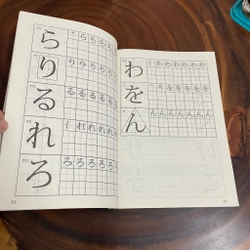 ら ら ら ら ら ら
り り り り り り
る る る る る る
れ れ れ れ れ れ
ろ ろ ろ ろ ろ
わ わ わ わ わ わ
を を を を を
ん ん ん ん ん ん ん